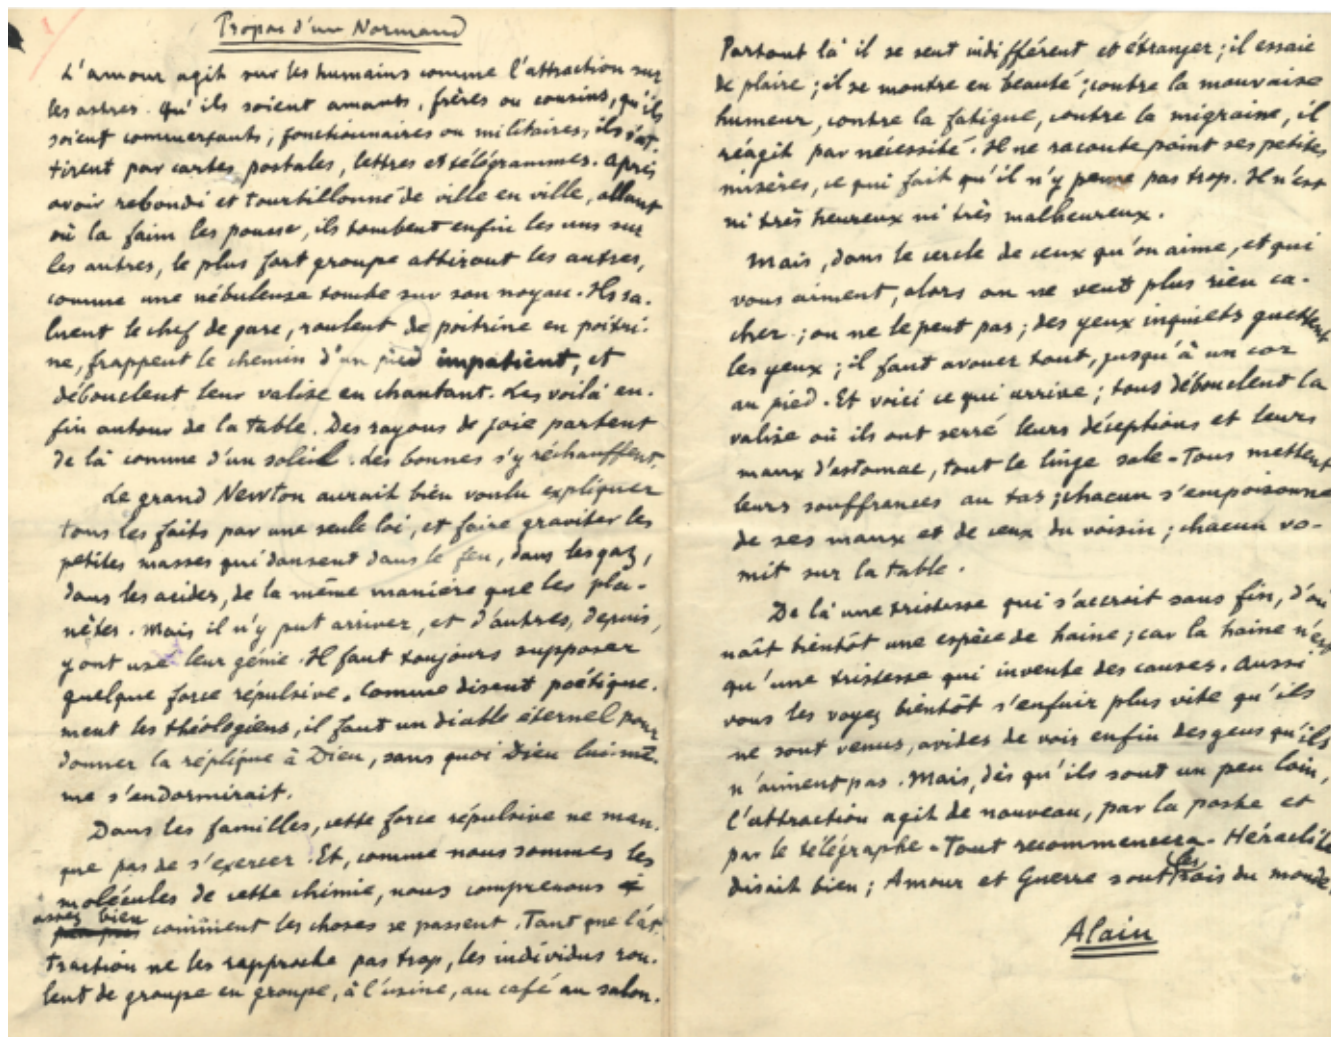 Propos d'un Normand
L'amour agit sur les humains comme l'attraction sur
les astres. Qu'ils soient amants, frères ou cousins, qu'ils
soient commerçants, fonctionnaires ou militaires, ils s'at-
tirent par cartes postales, lettres et télégrammes. Après
avoir rebondi et tourbillonné de ville en ville, allant
où la faim les pousse, ils tombent enfin les uns sur
les autres, le plus fort groupe attirant les autres,
comme une nébuleuse tombe sur son noyau. Ils sa-
luent le chef de gare, roulent de poitrine en poitri-
ne, frappent le chemin d'un pied impatient, et
débouclent leur valise en chantant. Les voilà en-
fin autour de la table. Des rayons de joie partent
de là comme d'un soleil. Les bonnes s'y réchauffent.
Le grand Newton aurait bien voulu expliquer
tous les faits par une seule loi, et faire graviter les
petites masses qui dansent dans le feu, dans les gaz,
dans les acides, de la même manière que les pla-
nètes. Mais il n'y put arriver, et d'autres, depuis,
y ont usé leur génie. Il faut toujours supposer
quelque force répulsive. Comme disent poétique-
ment les théologiens, il faut un diable éternel pour
donner la réplique à Dieu, sans quoi Dieu luimê-
me s'endormirait.
Dans les familles, cette force répulsive ne man-
que pas de s'exercer. Et, comme nous sommes les
molécules de cette chimie, nous comprenons
assez bien
comment les choses se passent. Tant que l'at-
traction ne les rapproche pas trop, les individus rou-
lent de groupe en groupe, à l'usine, au café au salon.
Partout là il se sent indifférent et étranger; il essaie
de plaire; il se montre en beauté; contre la mauvaise
humeur, contre la fatigue, contre la migraine, il
réagit par nécessité. Il ne raconte point ses petites
misères, ce qui fait qu'il n'y pense pas trop. Il n'est
ni très heureux ni très malheureux.
Mais, dans le cercle de ceux qu'on aime, et qui
vous aiment, alors on ne veut plus rien ca-
cher; on ne le peut pas; des yeux inquiets guettent
les yeux; il faut avouer tout, jusqu'à un cor
au pied. Et voici ce qui arrive; tous débouclent la
valise où ils ont serré leurs déceptions et leurs
maux d'estomac, tout le linge sale. Tous mettent
leurs souffrances au tas; chacun s'empoisonne
de ses maux et de ceux du voisin; chacun vo-
mit sur la table.
De là une tristesse qui s'accroît sans fin, d'où
naît bientôt une espèce de haine; car la haine n'est
qu'une tristesse qui invente des causes. Aussi
vous les voyez bientôt s'enfuir plus vite qu'ils
ne sont venus, avides de voir enfin des gens qu'ils
n'aiment pas. Mais, dès qu'ils sont un peu loin,
l'attraction agit de nouveau, par la poste et
par le télégraphe. Tout recommencera. Héraclite
disait bien; Amour et Guerre sont les rois du monde.
Alain